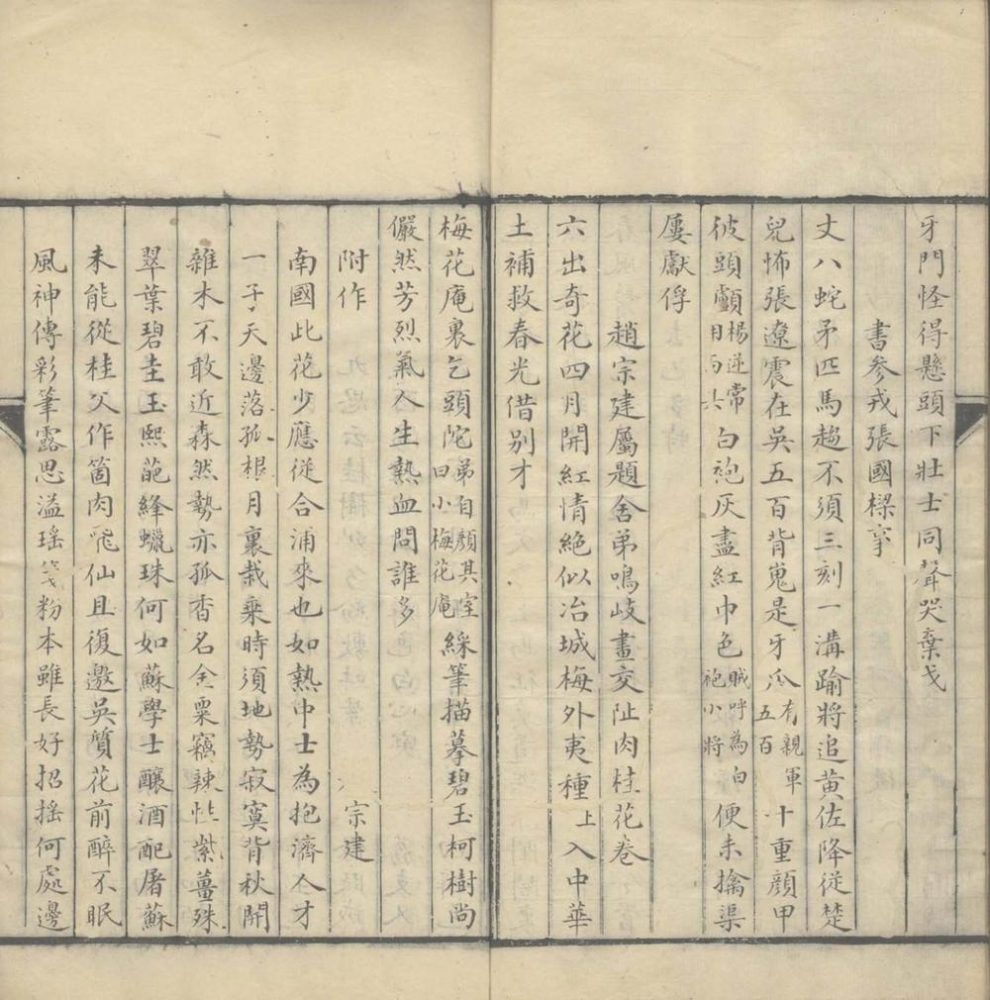 牙門怪得懸頭下壯士同聲哭棄戈
書參戎張國樑事
丈八蛇矛匹馬趫不須三刻一溝踰將追黃佐降從楚
兒怖張遼震在吳五百背嵬是牙爪有親軍五百十重顔甲
彼頭顱楊逆常目馬大白袍灰盡紅巾色賊呼為白袍小將便未擒渠
屢獻俘
趙宗建屬題舍弟鳴岐畫交阯肉桂花卷
六出奇花四月開紅情絶似冶城梅外夷種上入中華
土補救春光借別才
梅花庵裏乞頭陀弟自顏其室曰小梅花庵綵筆描摹碧玉柯樹尚
儼然芳烈氣人生熱血問誰多
附作 宗建
南國此花少應從合浦來也如熱中士為抱濟人才
一子天邊落孤根月裏栽乘時須地勢寂寞背秋開
雜木不敢近森然勢亦孤香名金粟竊辣性紫薑殊
翠葉碧圭玉熙葩絳蠟珠何如蘇學士釀酒配屠蘇
未能從桂父作箇肉飛仙且復邀吳質花前醉不眠
風神傳彩筆露思溢瑤箋粉本雖長好招搖何處邊